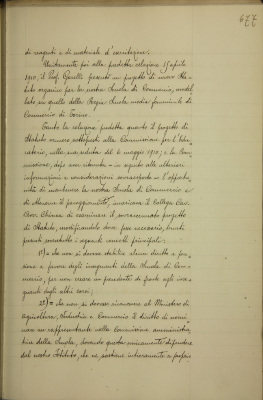 677
di magneti e di materiale d'esercitazione.
Unitamente poi alla predetta relazione 15 aprile
1910, il Prof. Ghirelli presentò un progetto di nuovo Sta-
tuto organico per la nostra Scuola di Commercio, model-
lato su quello della Regia Scuola media femminile di
Commercio di Torino.
Tanto la relazione predetta quanto il progetto di
Statuto vennero sottoposti alla Commissione per l'Isti-
tutorio, nella sua seduta del 6 maggio 1910; e la Com-
missione, dopo aver ritenuta - in seguito alle ulteriori
informazioni e considerazioni - l'opportu-
nità di mantenere la nostra Scuola di Commercio e
di ottenerne il pareggiamento, incaricava il Collega Cav.
Avv. Chiesa di esaminare il progetto
di Statuto, modificandolo dove fosse necessario, tenuti
presenti i seguenti concetti principali:
1º) = che non si dovesse stabilire alcun diritto a pen-
sione a favore degli insegnanti della Scuola di Com-
mercio, per non creare un precedente di fronte agli inse-
gnanti degli altri corsi;
2º) = che non si dovesse riconoscere al Ministero di
Agricoltura, Industria e Commercio il diritto di nomi-
nare un rappresentante nella Commissione amministra-
tiva della Scuola, dovendo questa unicamente dipendere
dal nostro Istituto, che ne sostiene interamente le spese